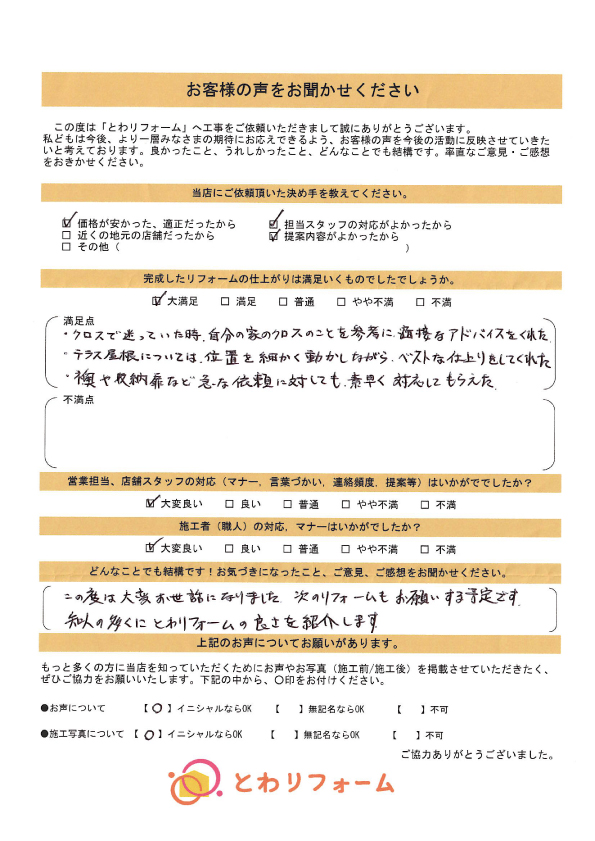 お客様の声をお聞かせください
この度は「とわリフォーム」へ工事をご依頼いただきまして誠にありがとうございます。
私どもは今後、より一層みなさまの期待にお応えできるよう、お客様の声を今後の活動に反映させていきた
いと考えております。良かったこと、うれしかったこと、どんなことでも結構です。率直なご意見・ご感想
をおきかせください。
当店にご依頼頂いた決め手を教えてください。
☑ 価格が安かった、適正だったから ☑ 担当スタッフの対応がよかったから
☐ 近くの地元の店舗だったから ☑ 提案内容がよかったから
☐ その他（ ）
完成したリフォームの仕上がりは満足いくものでしたでしょうか。
☑ 大満足 ☐ 満足 ☐ 普通 ☐ やや不満 ☐ 不満
満足点
・クロスで迷っていた時、自分の家のクロスのことを参考に、適切なアドバイスをくれた。
・テラス屋根については、位置を細かく動かしながら、ベストな仕上りをしてくれた
・襖や収納扉など急な依頼に対しても、素早く対応してもらえた。
不満点
営業担当、店舗スタッフの対応（マナー，言葉づかい，連絡頻度，提案等）はいかがででしたか？
☑ 大変良い ☐ 良い ☐ 普通 ☐ やや不満 ☐ 不満
施工者（職人）の対応，マナーはいかがでしたか？
☑ 大変良い ☐ 良い ☐ 普通 ☐ やや不満 ☐ 不満
どんなことでも結構です！お気づきになったこと、ご意見、ご感想をお聞かせください。
この度は大変お世話になりました。次のリフォームもお願いする予定です。
知人の多くにとわリフォームの良さを紹介します
上記のお声についてお願いがあります。
もっと多くの方に当店を知っていただくためにお声やお写真（施工前/施工後）を掲載させていただきたく、
ぜひご協力をお願いいたします。下記の中から、〇印をお付けください。
●お声について 【 〇 】イニシャルならOK 【 】無記名ならOK 【 】不可
●施工写真について 【 〇 】イニシャルならOK 【 】無記名ならOK 【 】不可
ご協力ありがとうございました。
とわリフォーム